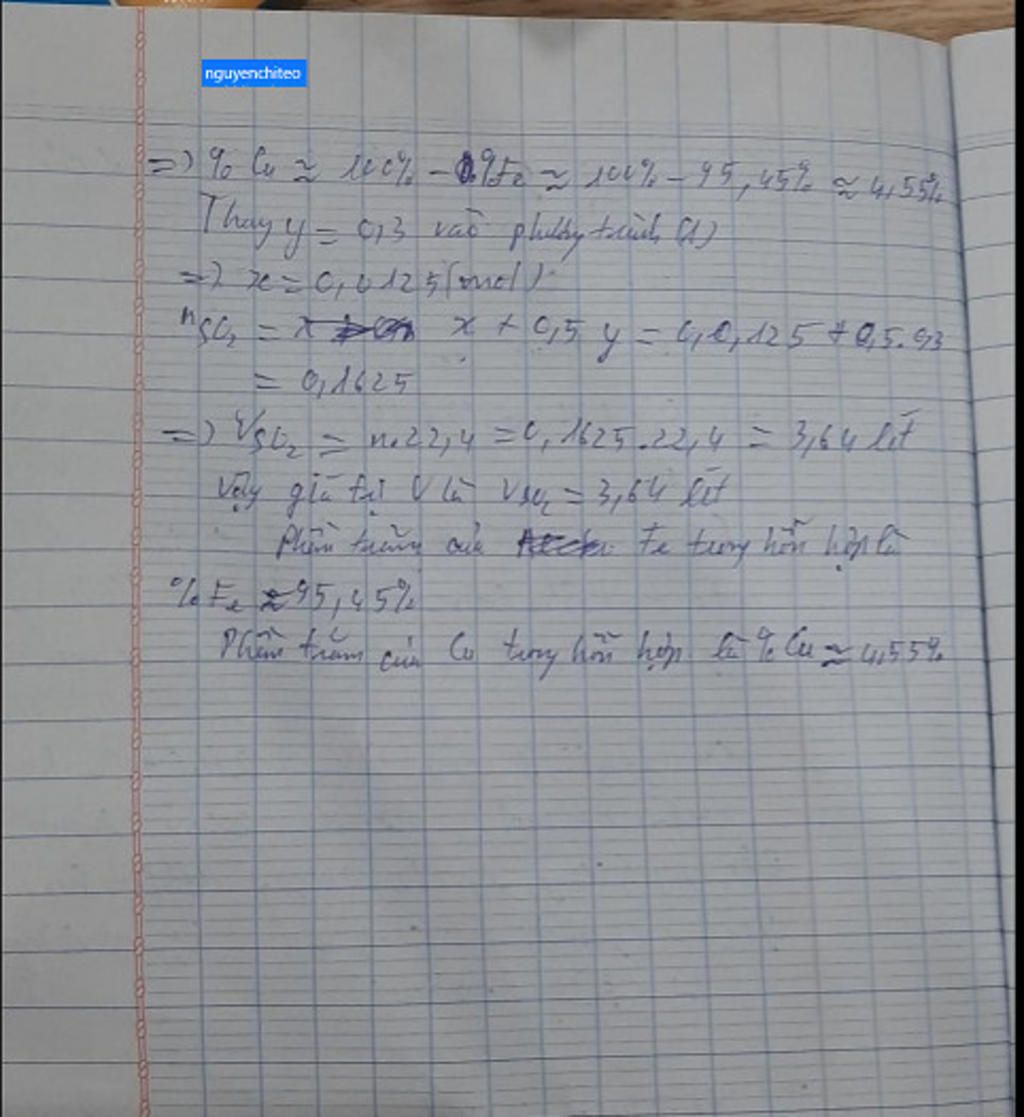 nguyenchiteo
=> % Cu ≈ 100% - %Fe ≈ 100% - 95,45% ≈ 4,55%
Thay y = 0,3 vào phương trình (1)
=> x = 0,0125 (mol)
nSO₂ = x + 0,5 y = 0,0125 + 0,5.0,3
= 0,1625
=> VSO₂ = n.22,4 = 0,1625.22,4 = 3,64 lít
Vậy giá trị V là VSO₂ = 3,64 lít
Phần trăm của Fe trong hỗn hợp là
% Fe ≈ 95,45%
Phần trăm của Cu trong hỗn hợp là % Cu ≈ 4,55%